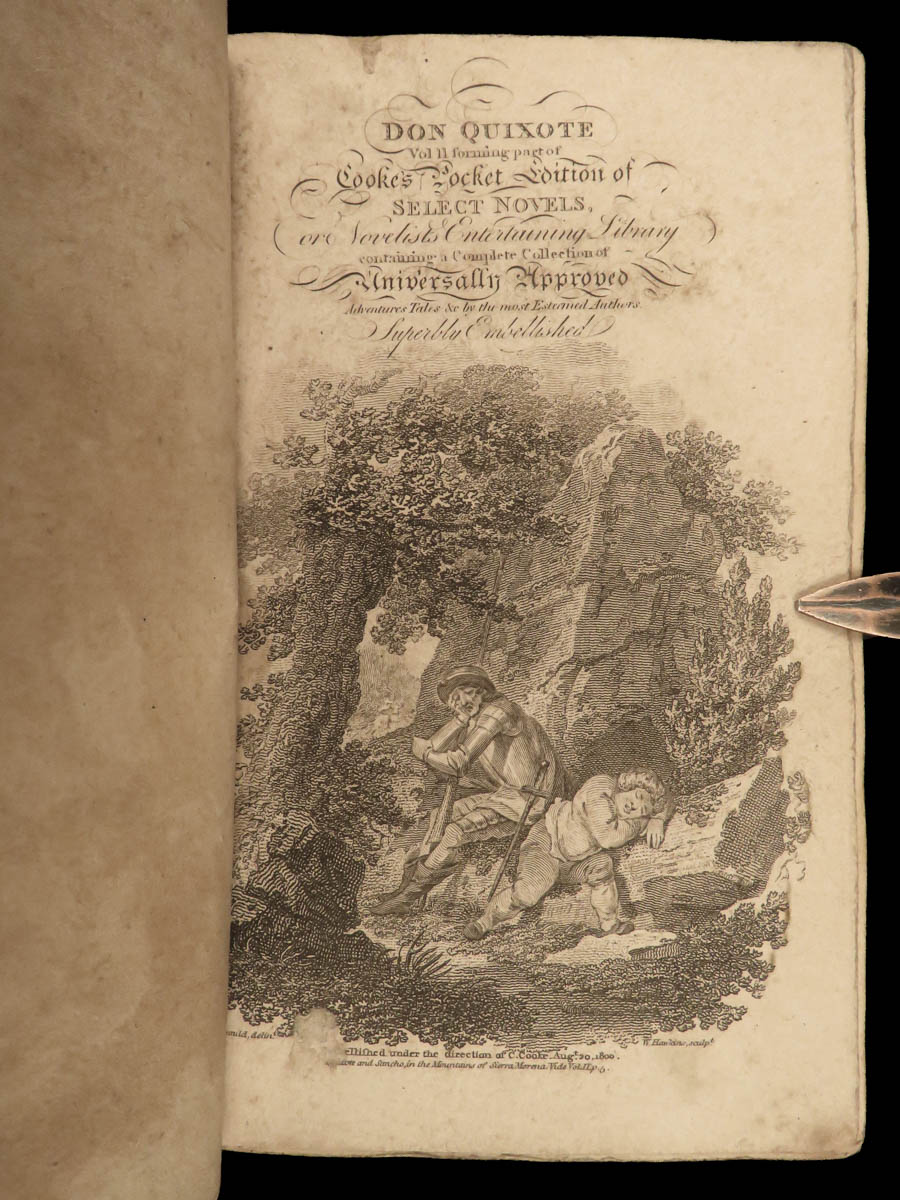 DON QUIXOTE
Vol II forming part of
Cooke's Pocket Edition of
SELECT NOVELS,
or Novelists Entertaining Library
containing a Complete Collection of
Universally Approved
Adventures Tales &c by the most Esteemed Authors.
Superbly Embellished
delint.
W. Hawkins, sculpt.
ellished under the direction of C. Cooke. Augt. 20, 1800.
and Sancho, in the Mountains of Sierra Morena. Vide Vol. II. p.